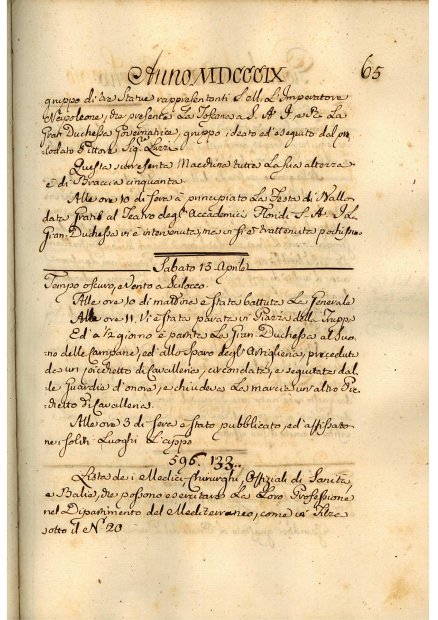 Anno MDCCCIX 65
gruppo di tre Statue rappresentanti S. M. L'Imperatore
Napoleone, che presenta La Toscana a S. A. I. e R. La
Gran Duchessa Governatrice, gruppo ideato ed eseguito dal
lodato Pittore Sig.
Questa Macchina tutta La sua altezza
è di Braccia cinquanta.
Alle ore 10 di sera è principiato La Festa di Ballo
data Gratis al Teatro degl'Accademici S. A. I. La
Gran-Duchessa vi è intervenuta, ma vi si è trattenuta pochissimo
Sabato 15 Aprile
Tempo oscuro, e vento a Scilocco.
Alle ore 10 di mattina è stata battuta La Generale
Alle ore 11 Vi è stata parata in Piazza delle Truppe
Ed a ½ giorno è partita La Gran-Duchessa al Suo-
no delle campane, ed allo Sparo degl'Artiglieria, preceduta
da un picchetto di Cavalleria, circondata, e seguitata dal-
le Guardie d'onore, e chiudeva La marcia un altro Pic-
chetto di Cavalleria.
Alle ore 3 di sera è stato pubblicato, ed affissato
ne i soliti Luoghi L'appo
596. 133..
Lista de i Medici, Chirurghi, Offiziali di Sanità,
e Balie, che possono esercitare La Loro Professione
nel Dipartimento del Mediterraneo, come in Filza
sotto il N.° 20